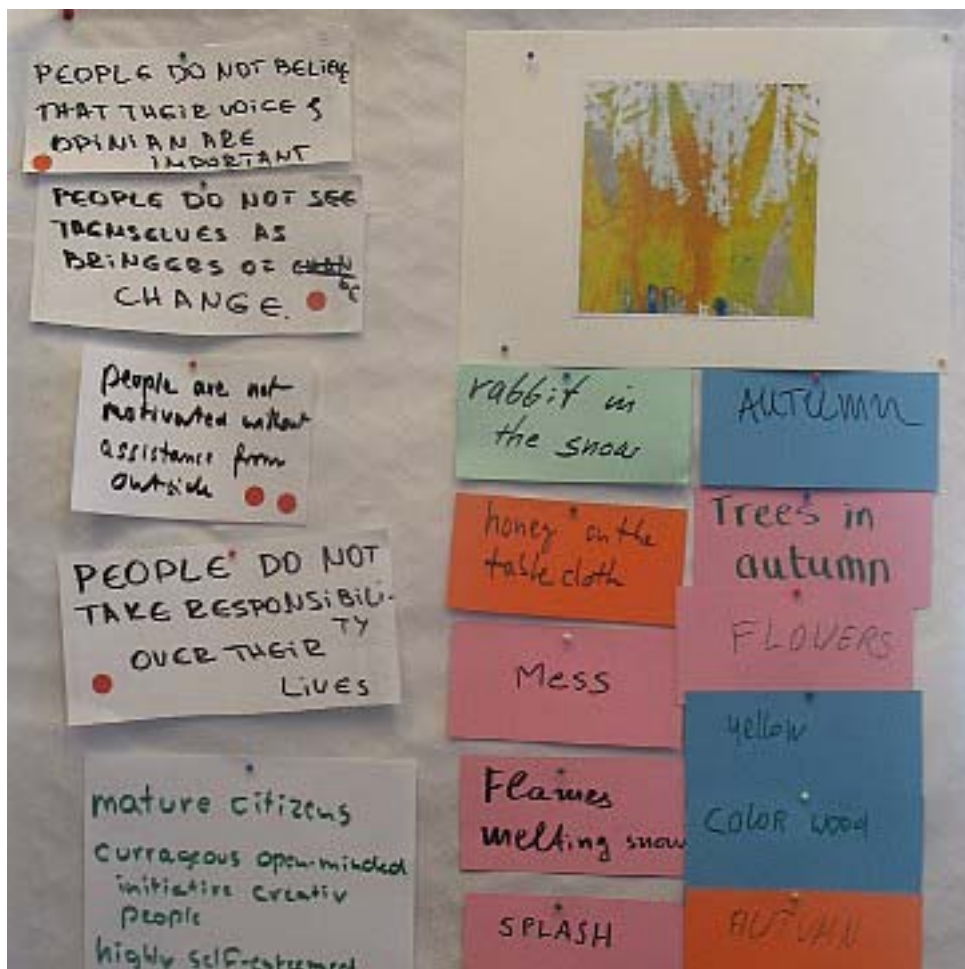 PEOPLE DO NOT BELIEVE
THAT THEIR VOICE &
OPINIAN ARE
IMPORTANT
PEOPLE DO NOT SEE
THEMSELVES AS
BRINGERS OF
CHANGE.
people are not
motivated without
assistance from
outside
PEOPLE DO NOT
TAKE RESPONSIBILI-
TY
OVER THEIR
LIVES
mature citizens
currageous open-minded
initiative creativ
people
highly self-esteemed
rabbit in
the snow
honey on the
table cloth
Mess
Flames
melting snow
SPLASH
AUTUMN
Trees in
autumn
FLOVERS
yellow
COLOR WOOD
AUTUMN